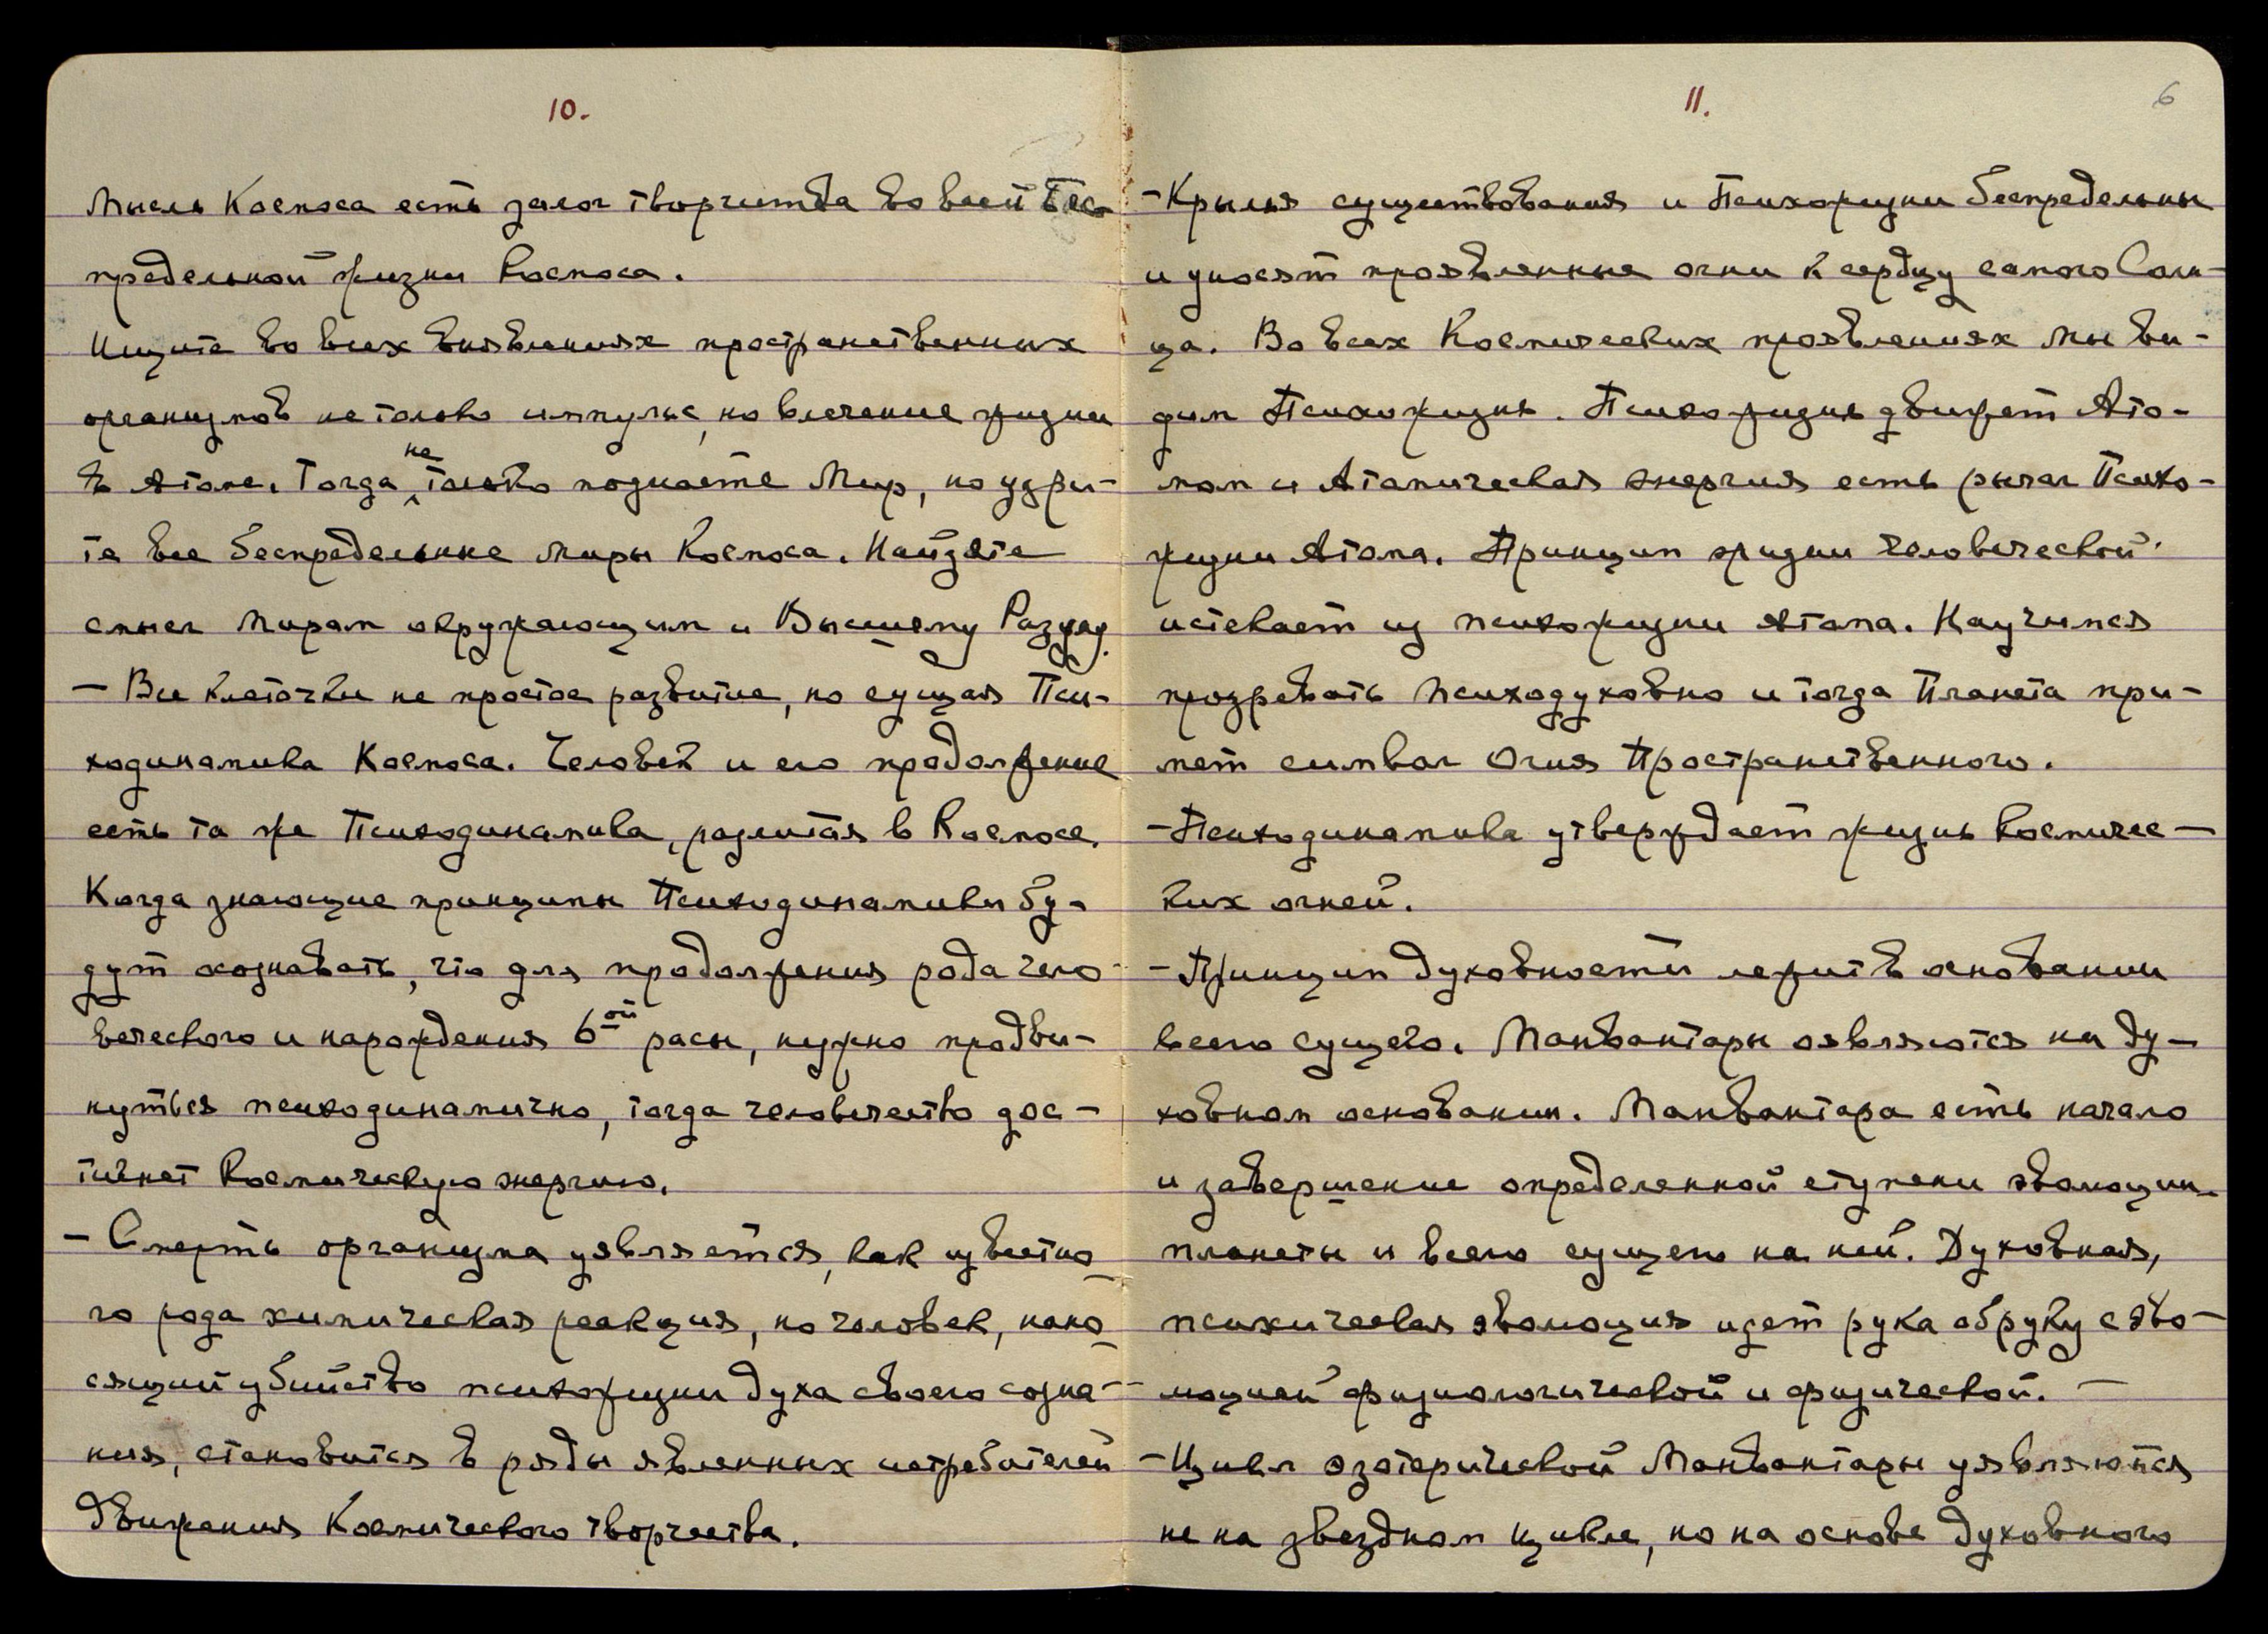 10.
Мысль Космоса есть залог творчества во всей Бес-
предельной жизни Космоса.
Ищите во всех выявлениях пространственных
организмов не только импульс, но влечение жизни
в Атоме. Тогда не только познаете Мир, но узри-
те все беспредельные миры Космоса. Найдете
смысл мирам окружающим и Высшему Разуму.
— Все клеточки не простое развитие, но сущая Пси-
ходинамика Космоса. Человек и его продолжение
есть та же Психодинамика, разлитая в Космосе.
Когда знающие принципы Психодинамики бу-
дут сознавать, что для продолжения рода чело-
веческого и нарождения 6ой расы, нужно продви-
нуться психодинамично, тогда человечество дос-
тигнет Космическую энергию.
— Смерть организма уявляется, как известно-
го рода химическая реакция, но человек, нано-
сящий убийство психожизни духа своего созна-
ния, становится в ряды явленных истребителей
движения Космического творчества.
11.
6
— Крылья существования и Психожизни беспредельны
и уносят проявленные огни к сердцу самого Солн-
ца. Во всех Космических проявлениях мы ви-
дим Психожизнь. Психожизнь движет Ато-
мом и Атомическая энергия есть рычаг Психо-
жизни Атома. Принцип жизни человеческой
истекает из психожизни Атома. Научимся
прозревать психодуховно и тогда Планета при-
мет символ Огня Пространственного.
— Психодинамика утверждает жизнь Космичес-
ких огней.
— Принцип духовности лежит в основании
всего сущего. Манвантары оявляются на ду-
ховном основании. Манвантара есть начало
и завершение определенной ступени эволюции
планеты и всего сущего на ней. Духовная,
психическая эволюция идет рука об руку с эво-
люцией физиологической и физической. —
— Цикл эзотерической Манвантары уявляются
не на звездном цикле, но на основе духовного